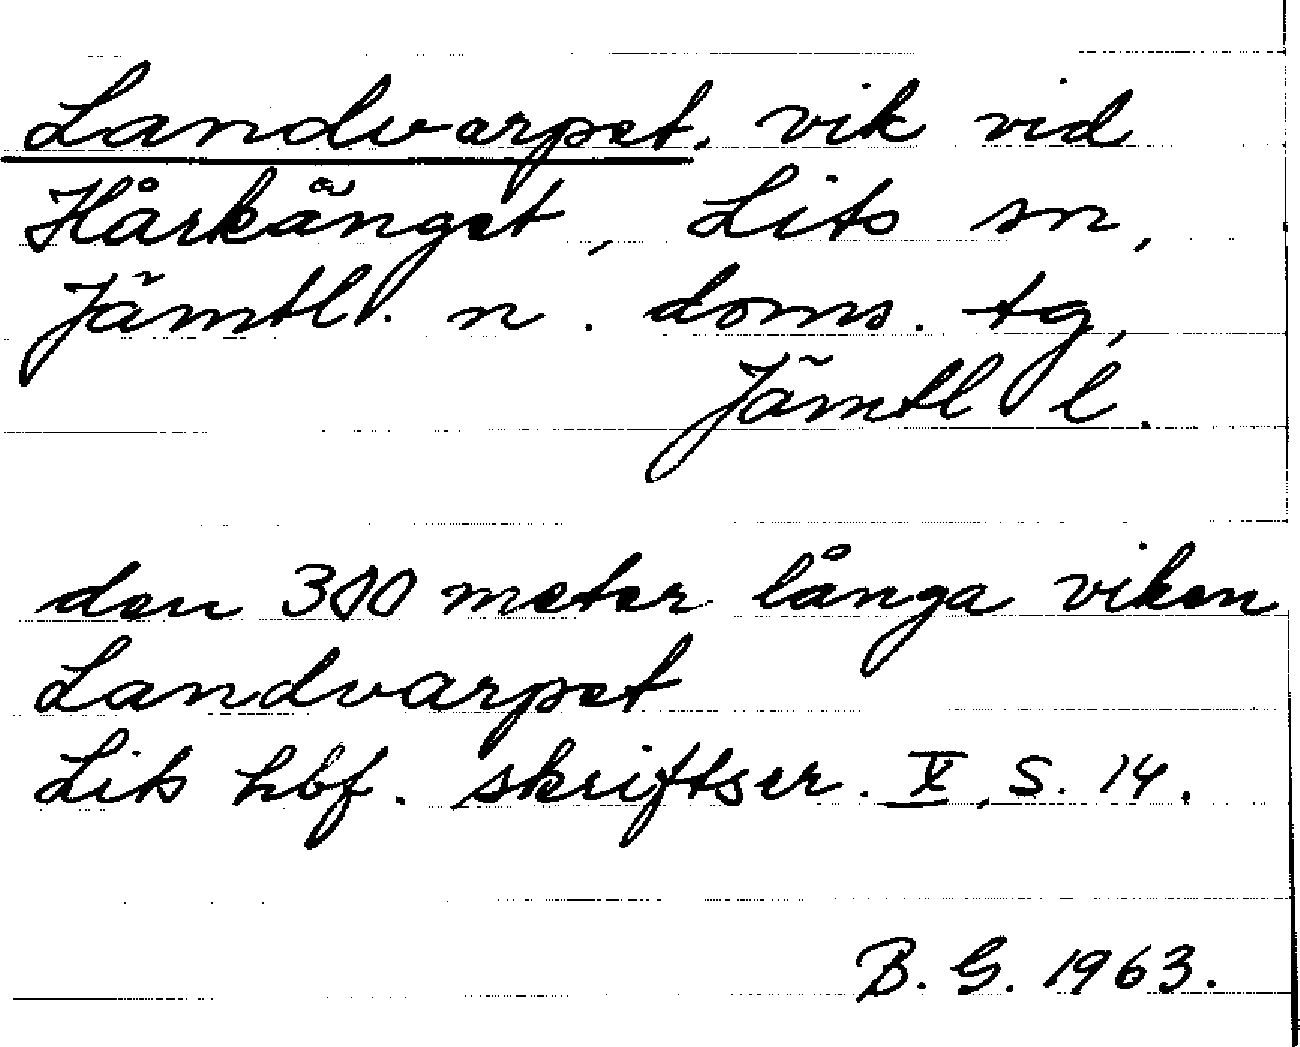 Landvarpet, vik vid
Hårkänget, Lits sn,
Jämtl. n. doms. tg,
Jämtl l.
den 300 meter långa viken
Landvarpet
Lits hbf. skriftser. V, S. 14.
B. G. 1963.